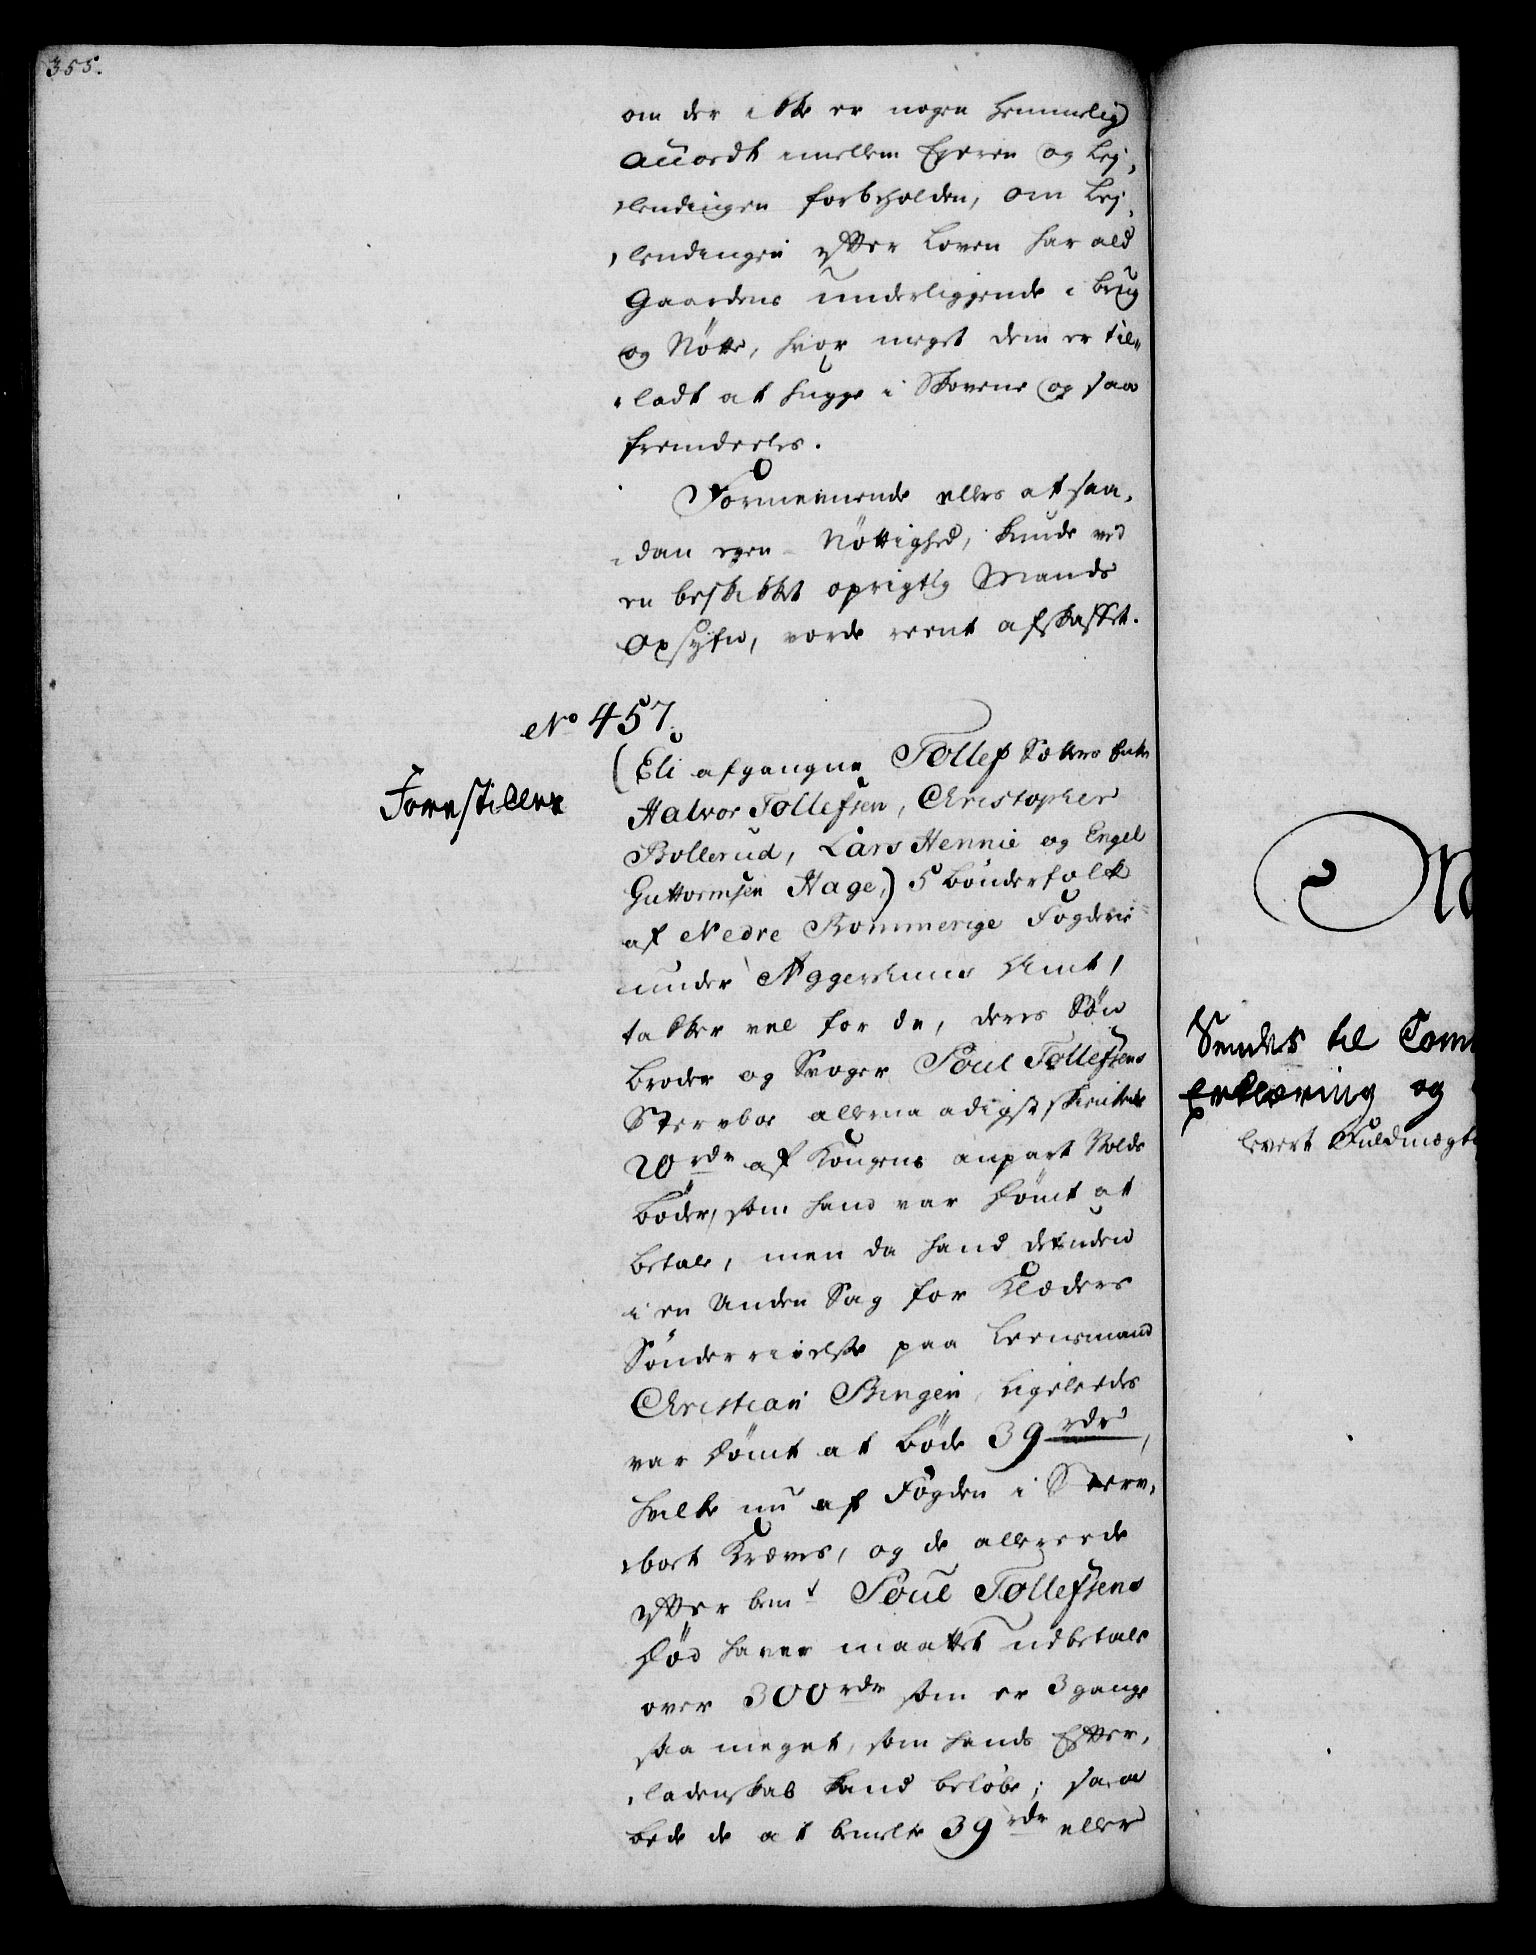 355.
om der ikke er nogen hemmelig
accordt imellem Eyeren og Lej,
,lendingen forbeholden, om Lej,
,lendingen efter Loven har ald
Gaardens underliggende i brug
og Nötte, hvor meget dem er til„
„ladt at hugge i Skovene og saa
fremdeeles.
Formeenende elles at saa,
,dan egen Nöttighed, kunde ved
en beskikket oprigtig Mands
Opsyfn, vorde reent afskaffet.
No 457.
Forestiller
(Eli afgangne Tollef Enke
Halvor Tollefsen, Christopher
Bollerud, Lars Hennie og Engel
Guttormsen Hage,) 5 bönderfolk
af Nedre Rommerige Fogderie
under Aggershuus Amt,
takker vel for de, deres Sön
broder og Svoger Poul Tollefsens
Stervboe allernaadigst skienkede
20 rdr af Kongens anpart Volds
böder, som hand var dömt at
betale, men da hand desuden
i en Anden Sag for Klæders
Sönderrivelse paa Leensmand
Christian Bingen, ligeleedes
var dömt at böde 39 rdr,
hvilke nu af Fogden i Sterv,
,boet Kræves, og de allereede
efter bemt Poul Tollefsens
död haver maattet udbetale
over 300 rdr som er 3 gange
saa meget, som hands Efter,
,ladenskab kand belöbe; saa
bede de at bemelte 39 rdr eller
Sendes til Com
Erklæring og
levert Fuldmægt